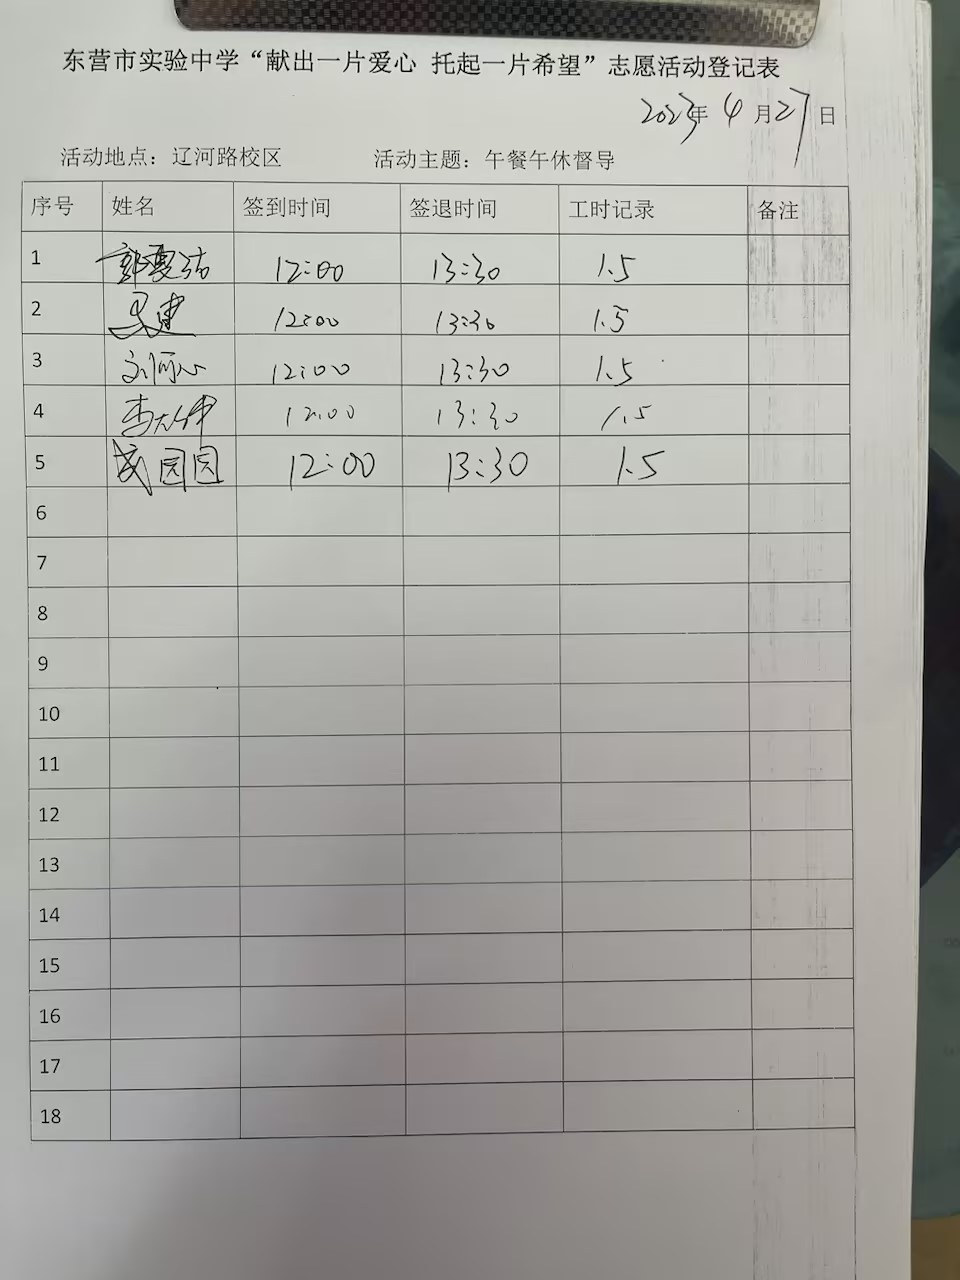 东营市实验中学“献出一片爱心 托起一片希望”志愿活动登记表
2023年 4 月 27 日
活动地点：辽河路校区 活动主题：午餐午休督导
序号 姓名 签到时间 签退时间 工时记录 备注
1 12:00 13:30 1.5
2 12:00 13:30 1.5
3 12:00 13:30 1.5
4 12:00 13:30 1.5
5 园园 12:00 13:30 1.5
6
7
8
9
10
11
12
13
14
15
16
17
18